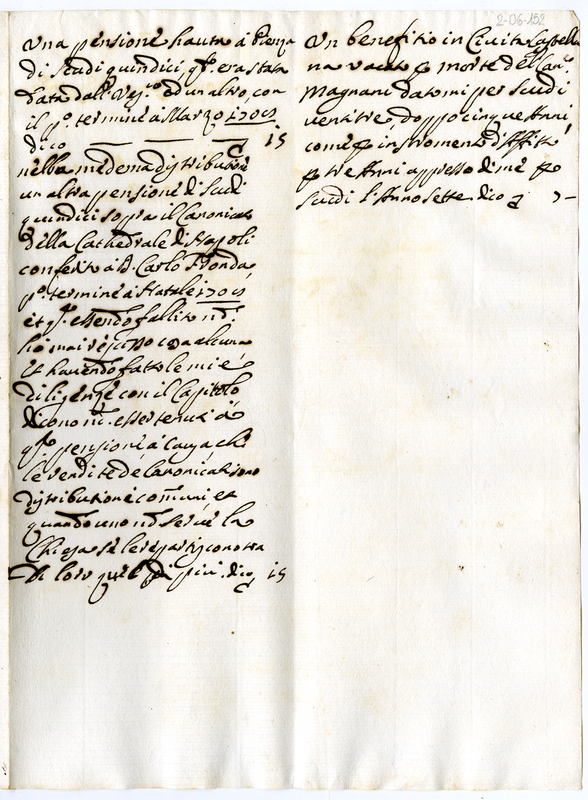 2-06-152
Una pensione hauta à Pienza
di scudi quindici, q.^ era stata
data dall' ed un altro, con
il p.º termine à Marzo 1705
dico 15
nella medema distributione
un altra pensione di scudi
quindici sopra il Canonicato
della Cathedrale di Napoli
conferito à D. Carlo
p.º termine à Natale 1705
et q.^ essendo fallito nõ
hò mai riscosso cosa alcuna
et havendo fatto le mie
diligenze con il Capitolo
dicono nõ esser tenuti à
q.^ pensione à causa che
le rendite de Canonicati sono
distributione comuni, et
quando uno nõ serve la
Chiesa se le repartiscono tra
di loro quel di più. dico 15
Un benefitio in Civita Castella
na vacato p morte del Can.^
Magnani datomi per scudi
ventitre, doppo cinque Anni
come p instromento d'Affitto
p tre Anni appresso di me p
scudi l'Anno sette dico 7 –